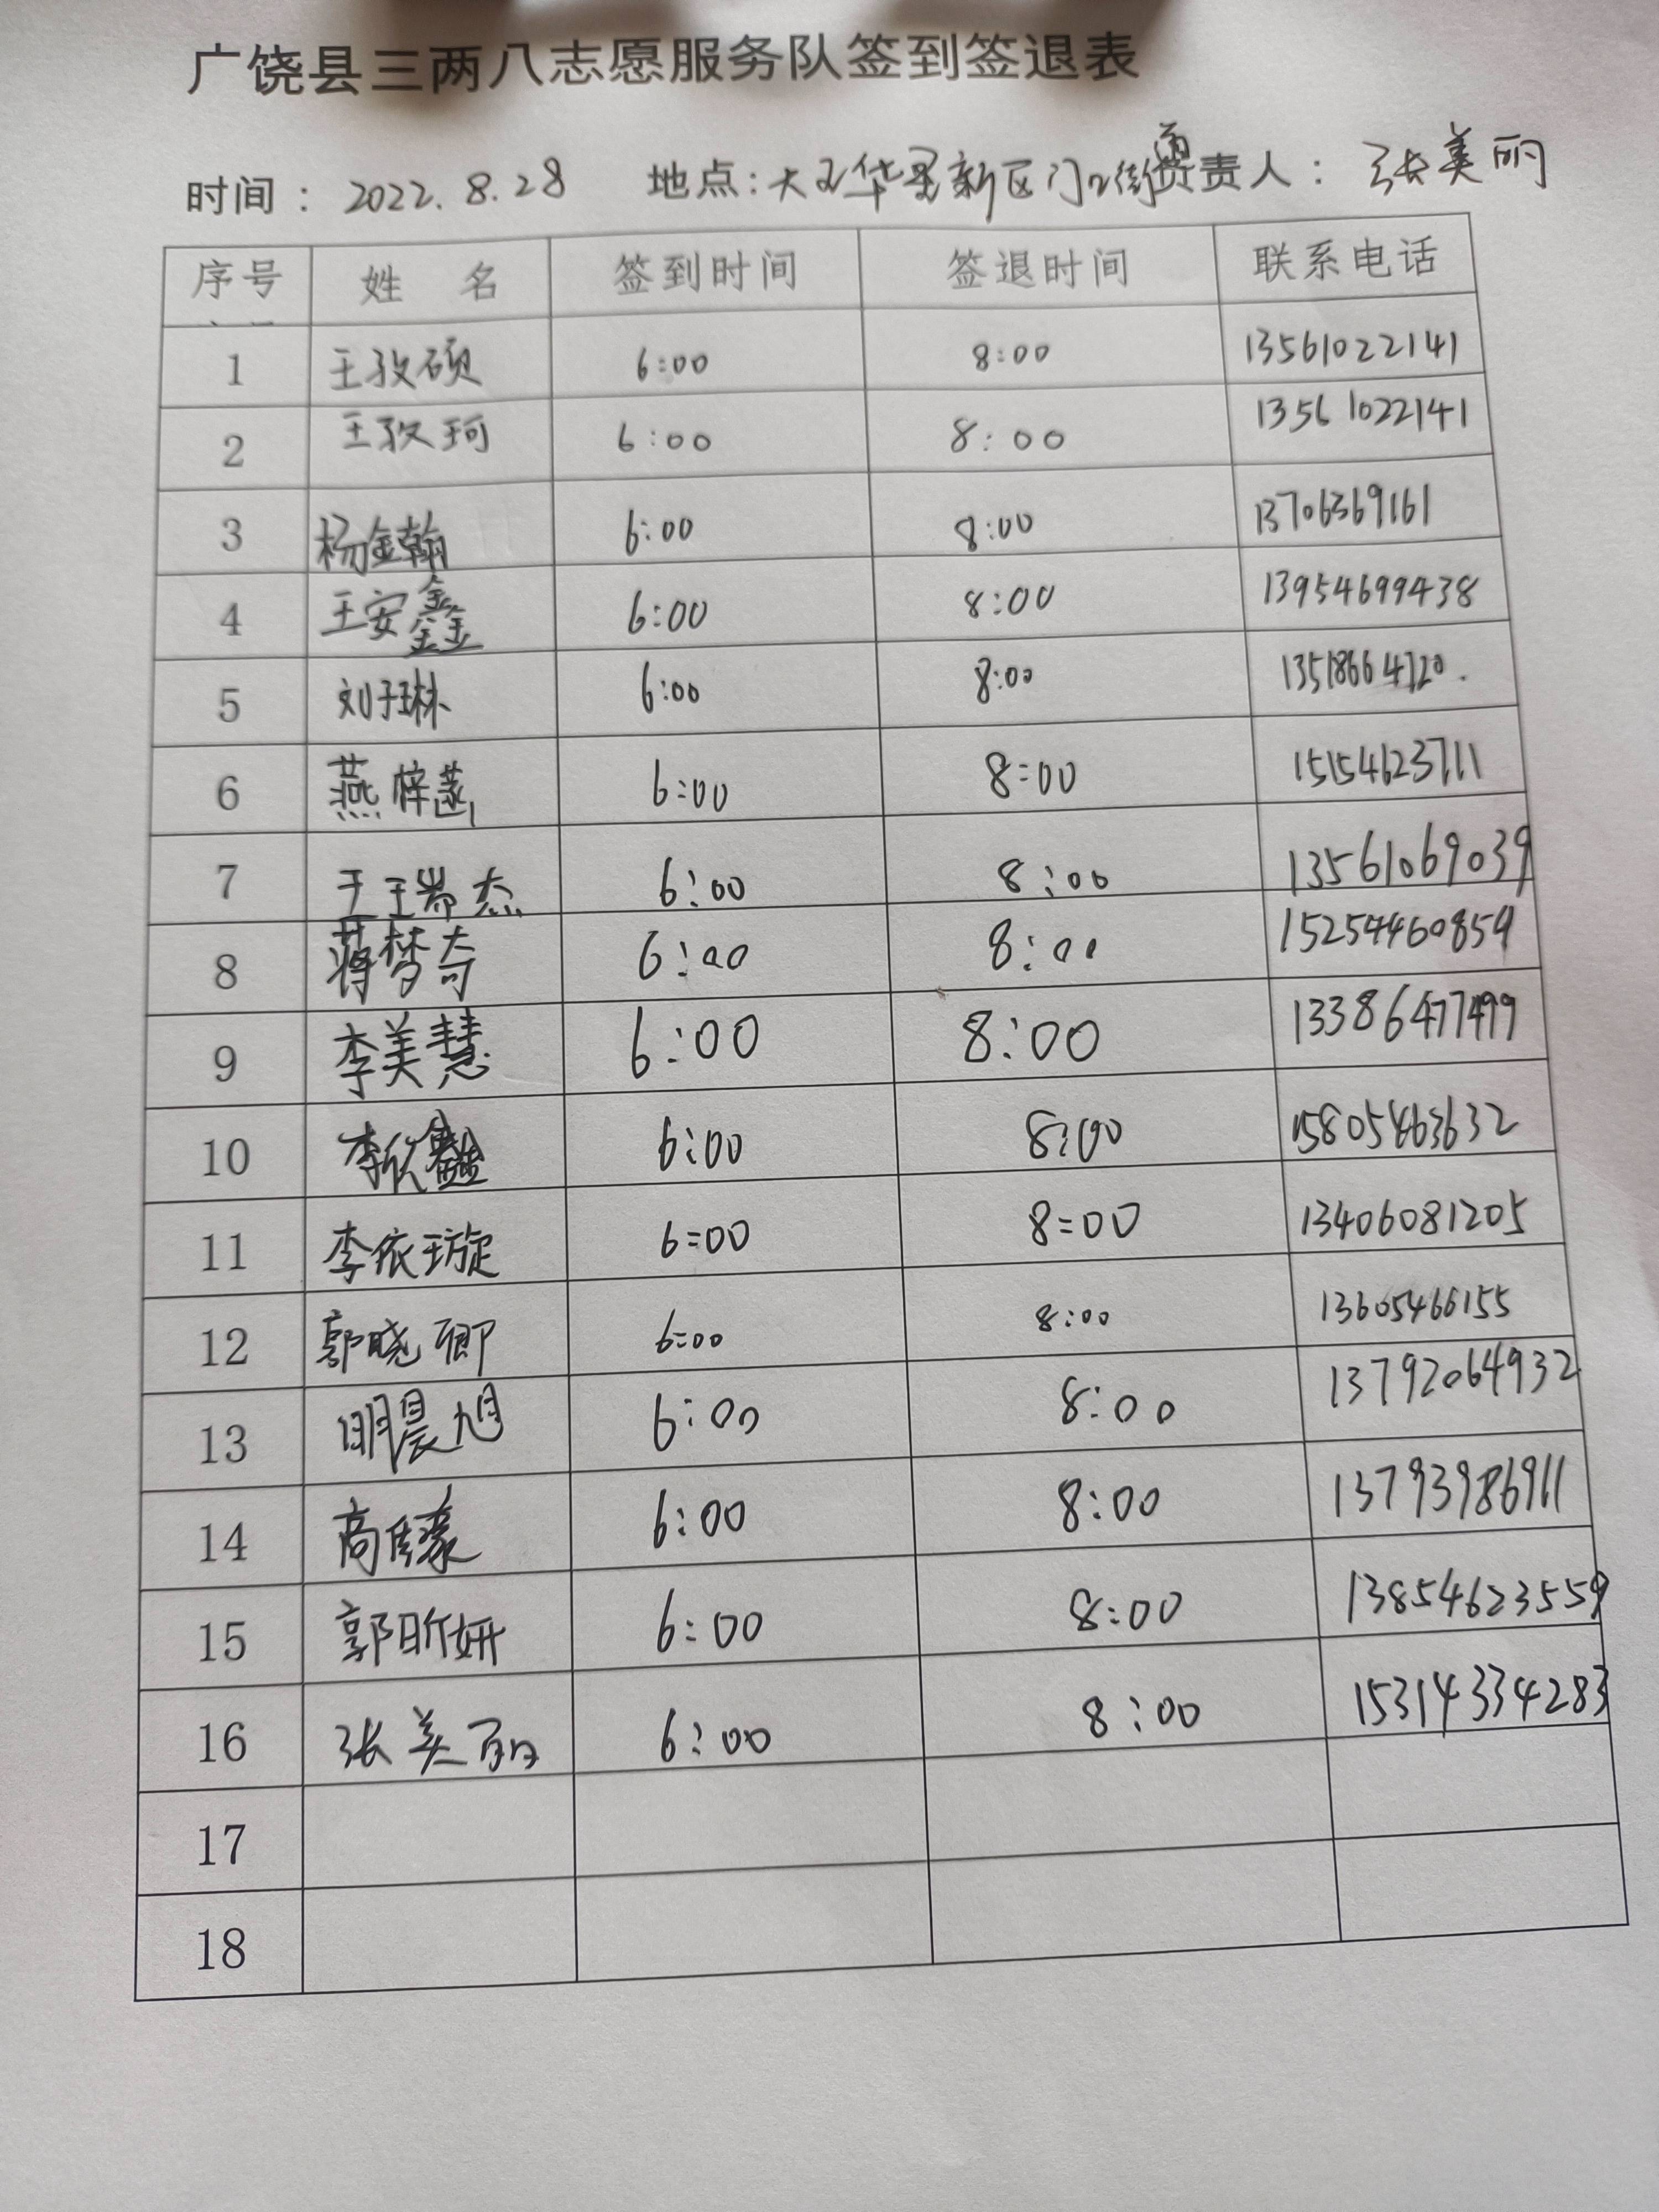 广饶县三两八志愿服务队签到签退表
时间：2022.8.28 地点:大王华星新区门口街 负责人：张美丽
序号 姓 名 签到时间 签退时间 联系电话
1 王孜硕 6:00 8:00 13561022141
2 王孜珂 6:00 8:00 13561022141
3 杨金翰 6:00 8:00 13706369161
4 王安鑫 6:00 8:00 13954699438
5 刘子琳 6:00 8:00
6 燕梓菡 6:00 8:00 15154623711
7 王瑞杰 6:00 8:00 13561069039
8 蒋梦奇 6:00 8:00 15254460859
9 李美慧 6:00 8:00 13386477499
10 李欣 6:00 8:00 15805463632
11 李依璇 6:00 8:00 13406081205
12 郭晓卿 6:00 8:00 13605466155
13 明晨旭 6:00 8:00 13792064932
14 高 6:00 8:00 13793986911
15 郭昕妍 6:00 8:00 13854623559
16 张美丽 6:00 8:00 15314334283
17
18